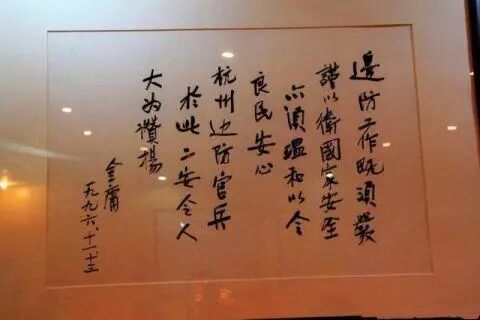 邊防工作既須嚴
謹以衛國家安全
亦須溫和以令
良民安心
杭州边防官兵
於此二安令人
大为讚揚
金庸
一九九六、十一、十三